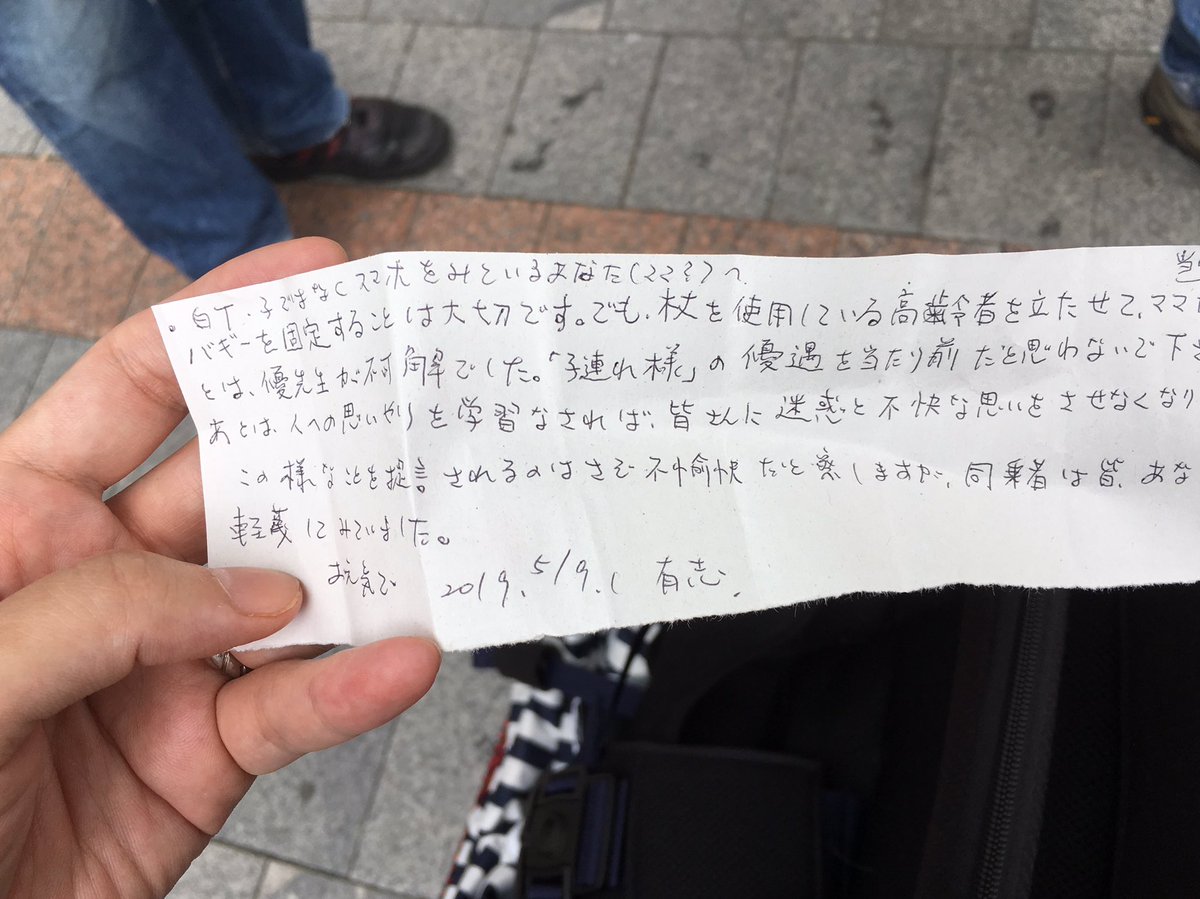 。自下・子ではなくスマホをみているあなた(ママ)へ 当
バギーを固定することは大切です。でも、杖を使用している高齢者を立たせて、ママ
とは、優先生が不可解でした。「子連れ様」の優遇を当たり前だと思わないで下さ
あとは、人への思いやりを学習なされば、皆さんに迷惑と不快な思いをさせなくなり
この様なことを提言されるのはさぞ不愉快だと察しますが、同乗者は皆、あな
軽蔑してみていました。
お元気で 2019.5/9.( 有志.